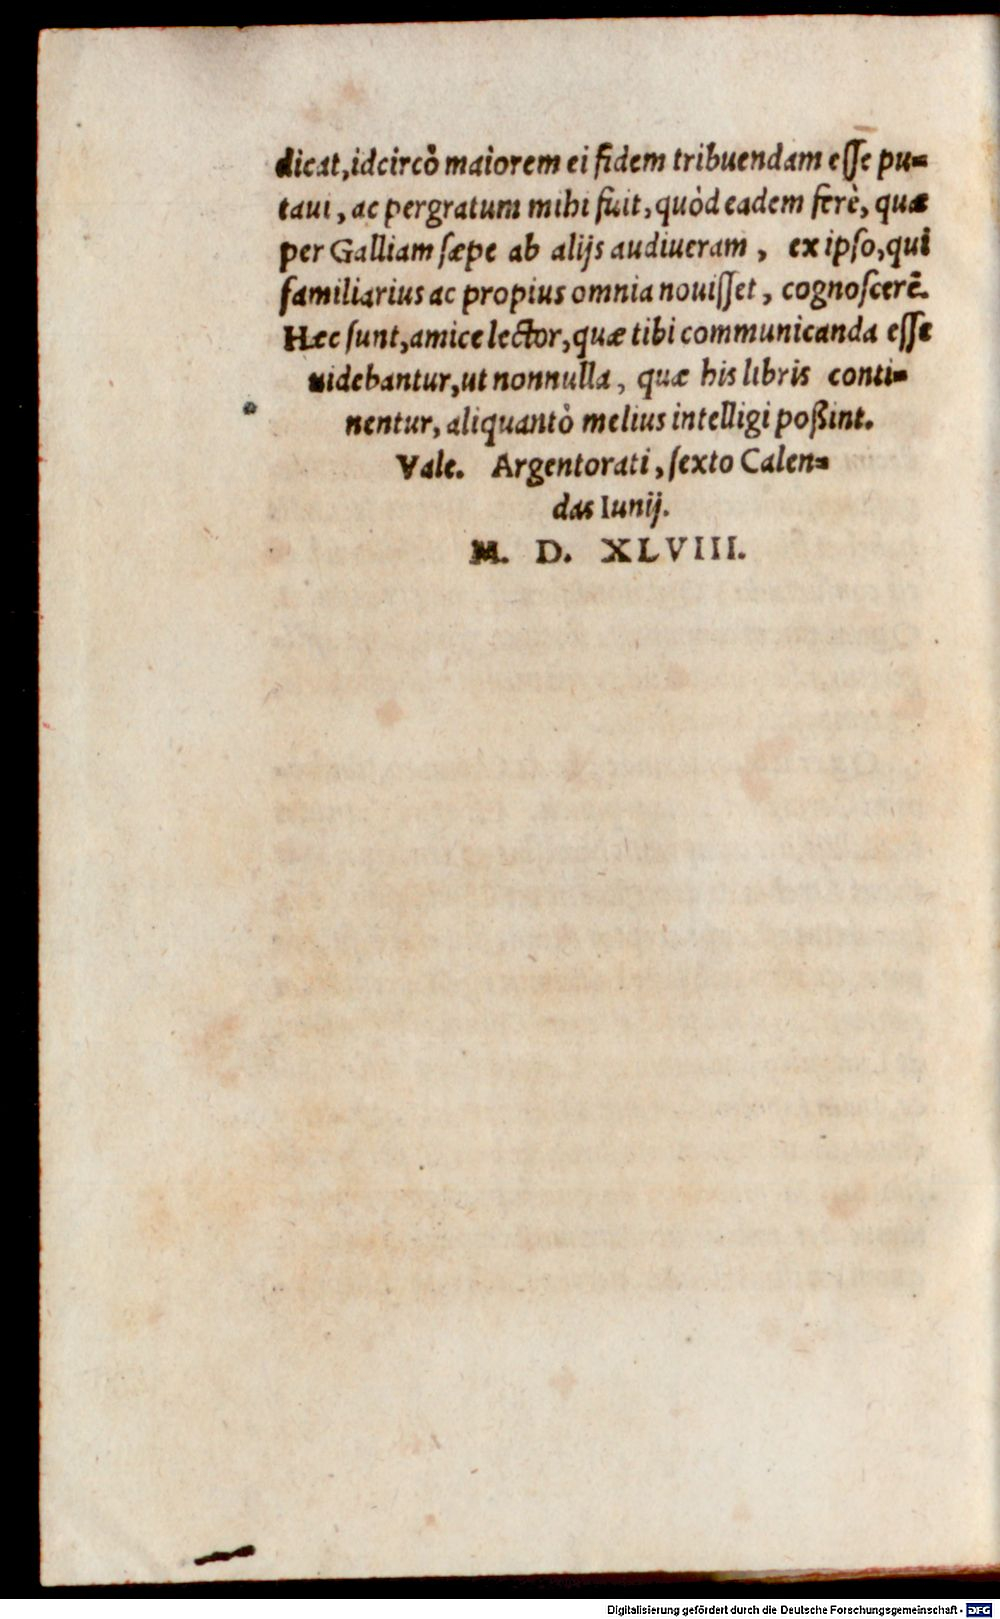 dicat, idcircò maiorem ei fidem tribuendam eſſe pu-
taui, ac pergratum mihi fuit, quòd eadem ferè, quæ
per Galliam ſæpe ab alijs audiueram, ex ipſo, qui
familiarius ac propius omnia nouiſſet, cognoſcerē.
Hæc ſunt, amice lector, quæ tibi communicanda eſſe
uidebantur, ut nonnulla, quæ his libris conti-
nentur, aliquantò melius intelligi poßint.
Vale. Argentorati, ſexto Calen-
das Iunij.
M. D. XLVIII.
Digitalisierung gefördert durch die Deutsche Forschungsgemeinschaft - DFG